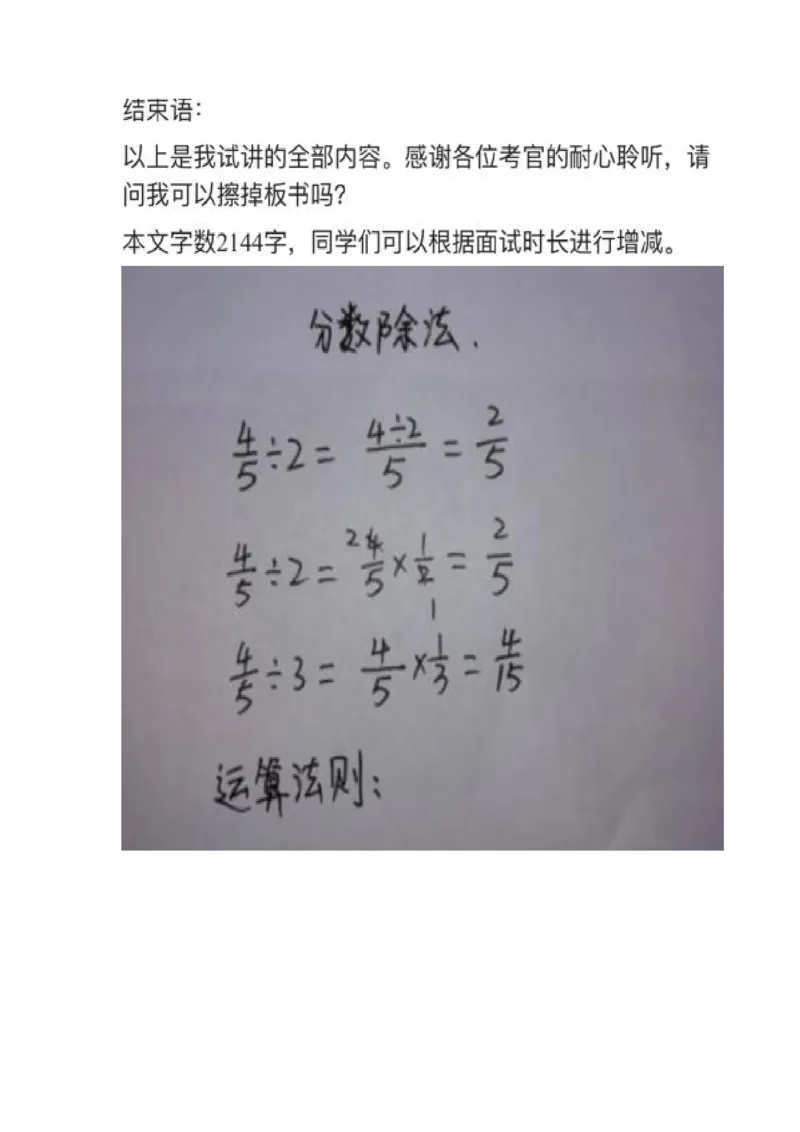 结束语：
以上是我试讲的全部内容。感谢各位考官的耐心聆听，请
问我可以擦掉板书吗？
本文字数2144字，同学们可以根据面试时长进行增减。
分数除法.
4/5÷2= 4÷2/5 = 2/5
4/5÷2= 2 4/5 × 1/2 1 = 2/5
4/5÷3= 4/5 × 1/3 = 4/15
运算法则：